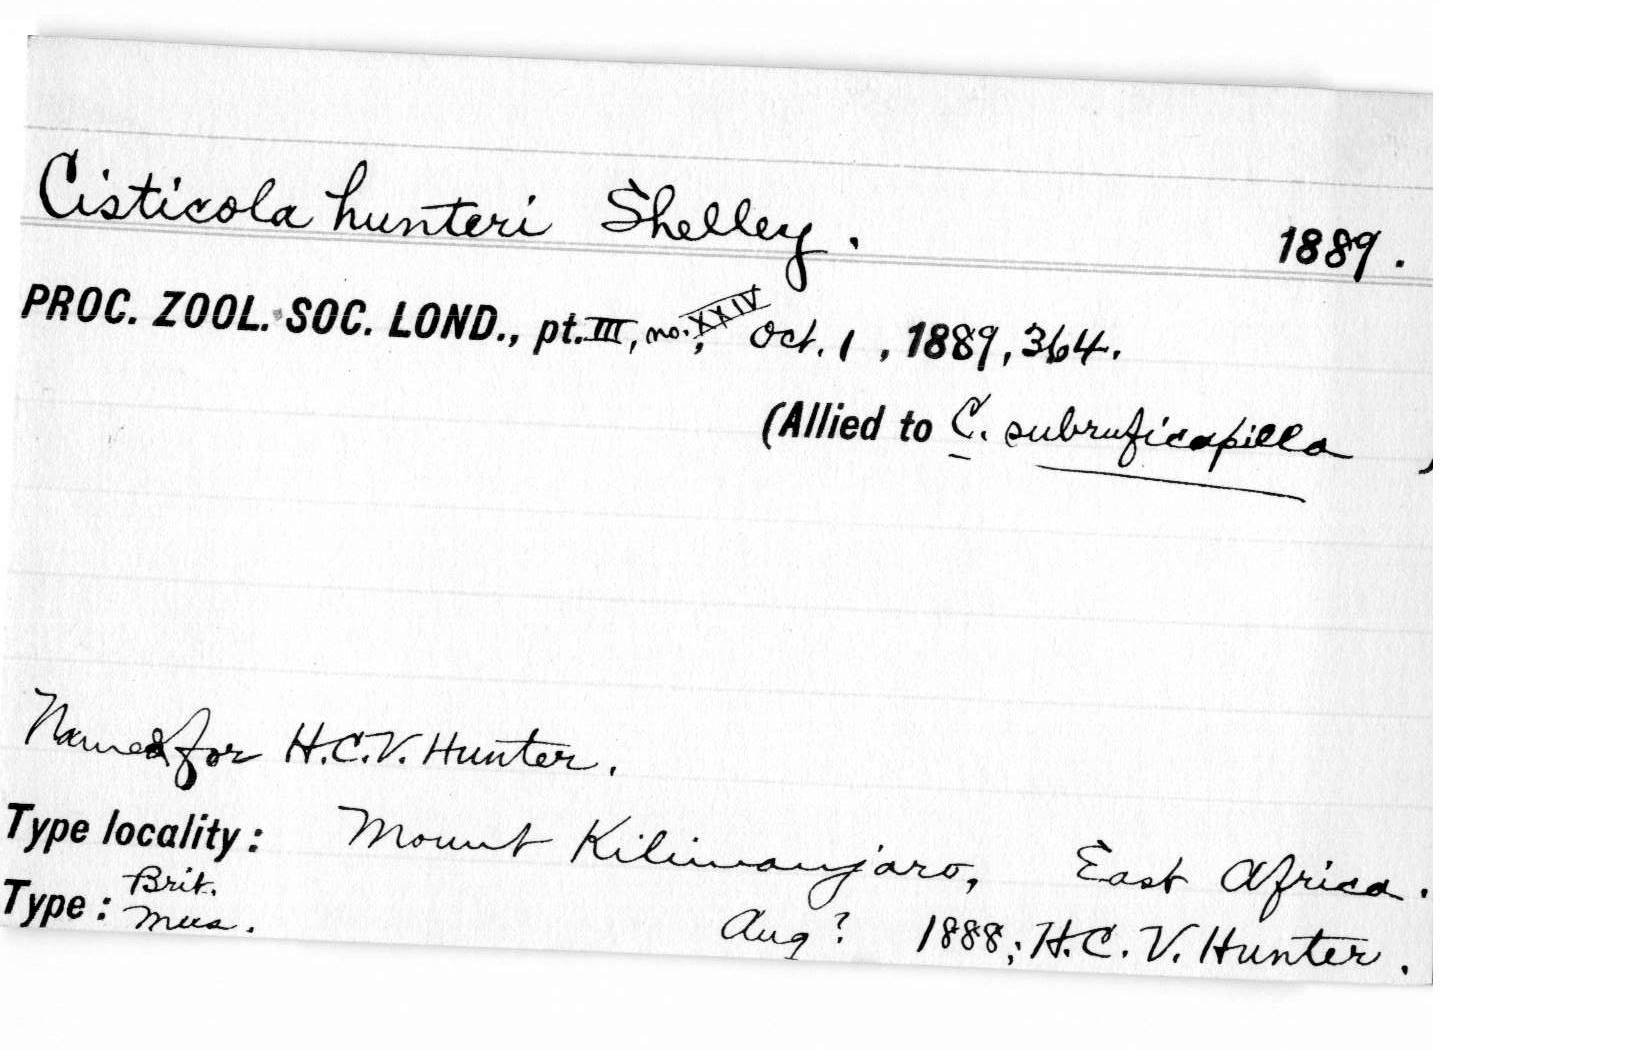 Cisticola hunteri Shelley. 1889.
PROC. ZOOL. SOC. LOND., pt. III, no. XXIV, Oct. 1, 1889, 364.
(Allied to C. subruficapilla )
Named for H.C.V. Hunter.
Type locality: Mount Kilimanjaro, East Africa.
Type: Brit. Mus. Aug? 1888; H.C.V. Hunter.